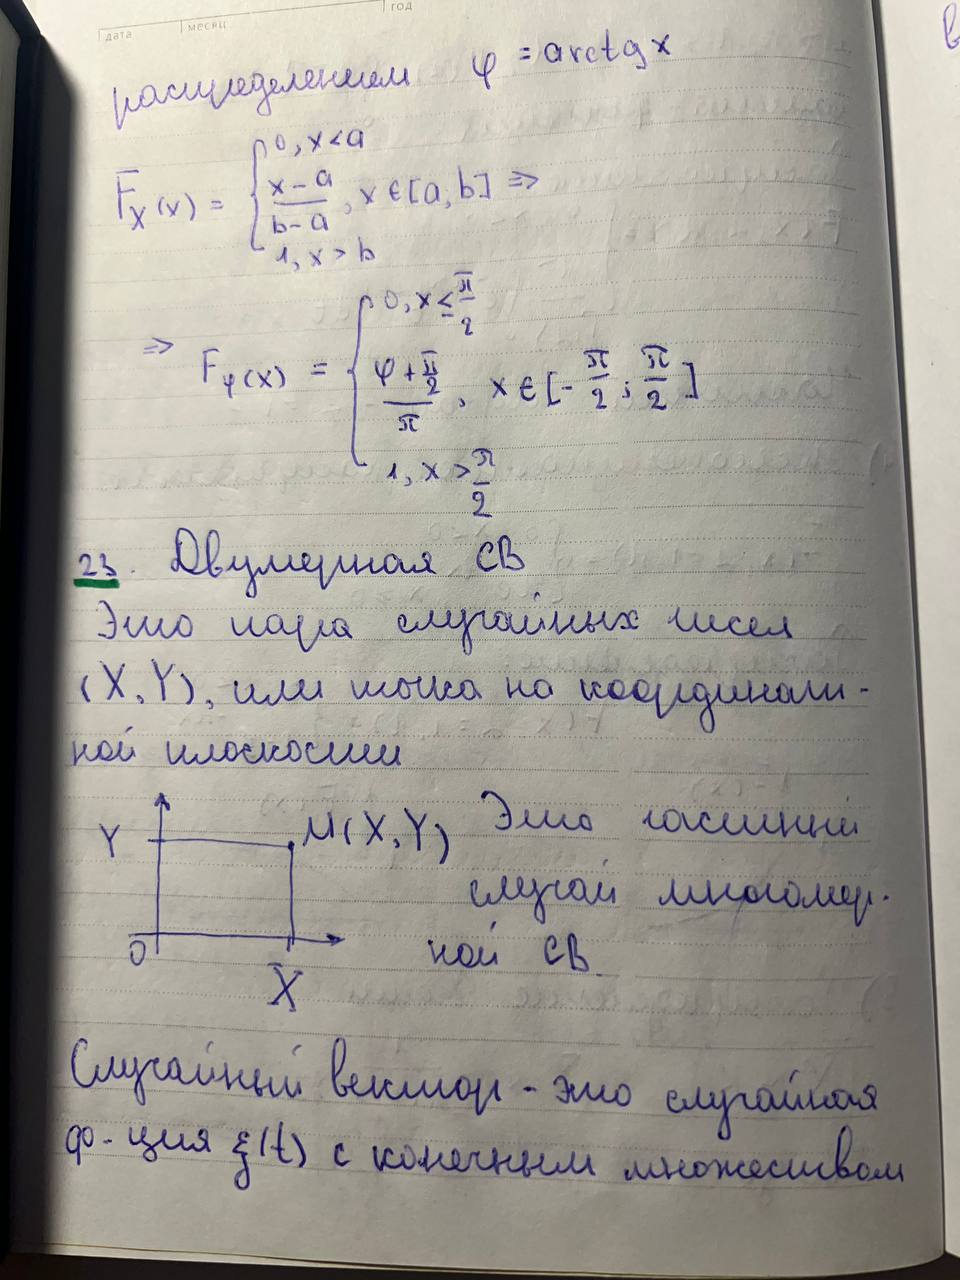 дата месяц год
распределением φ = arctg x
F_X(x) = { 0, x < a
(x - a)/(b - a), x ∈ [a, b] ⇒
1, x > b
⇒ F_φ(x) = { 0, x ≤ π/2
(φ + π/2)/π, x ∈ [-π/2; π/2]
1, x > π/2
23. Двумерная СВ
Это пара случайных чисел
(X, Y), или точка на координат-
ной плоскости
Y M(X, Y) Это частный
случай многомер-
0 ной СВ
X
Случайный вектор - это случайная
ф-ция ξ(t) с конечным множеством